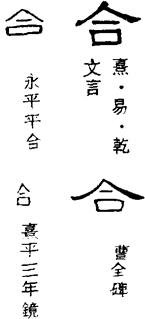 合
熹·易·乾
文言
合
曹全碑
合
永平平合
合
熹平三年鏡